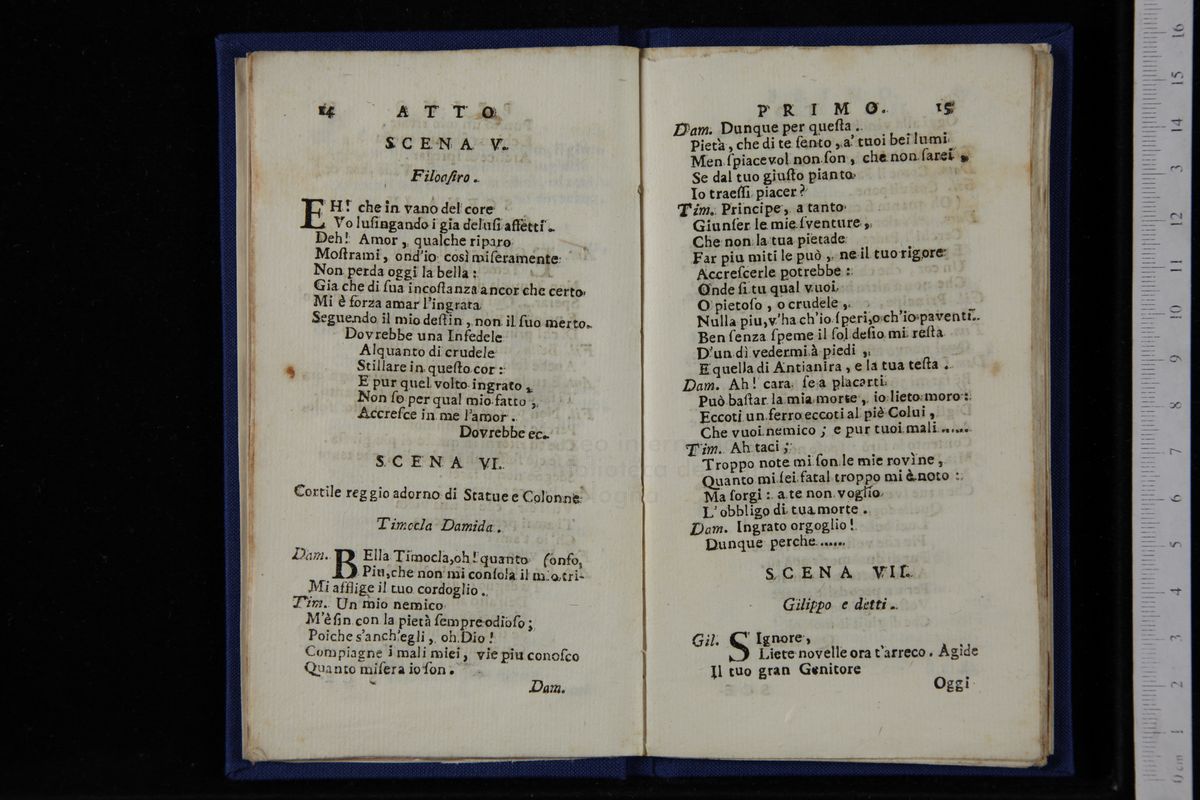 14 ATTO
SCENA V.
Filoosiro.
EH! che in vano del core
Vo lusingando i gia delusi affetti.
Deh! Amor, qualche riparo
Mostrami, ond'io così miseramente
Non perda oggi la bella:
Gia che di sua incostanza ancor che certo
Mi è forza amar l'ingrata
Seguendo il mio destin, non il suo merto.
Dovrebbe una Infedele
Alquanto di crudele
Stillare in questo cor:
E pur quel volto ingrato,
Non so per qual mio fatto,
Accresce in me l'amor.
Dovrebbe ec.
SCENA VI.
Cortile reggio adorno di Statue e Colonne
Timocla Damida.
Dam. BElla Timocla, oh! quanto (onfo,
Piu, che non mi consola il mio tri-
Mi afflige il tuo cordoglio.
Tim. Un mio nemico
M'è fin con la pietà sempre odioso;
Poiche s'anch'egli, oh Dio!
Compiagne i mali miei, vie piu conosco
Quanto misera io son.
Dam.
PRIMO. 15
Dam. Dunque per questa.
Pietà, che di te sento, a' tuoi bei lumi
Men spiacevol non son, che non sarei,
Se dal tuo giusto pianto
Io traessi piacer?
Tim. Principe, a tanto
Giunser le mie sventure,
Che non la tua pietade
Far piu miti le può, ne il tuo rigore
Accrescerle potrebbe:
Onde si tu qual vuoi
O pietoso, o crudele,
Nulla piu, v'ha ch'io speri, o ch'io paventi.
Ben senza speme il sol desio mi resta
D'un dì vedermi à piedi,
E quella di Antianira, e la tua testa.
Dam. Ah! cara se a placarti
Può bastar la mia morte, io lieto moro:
Eccoti un ferro eccoti al piè Colui,
Che vuoi nemico; e pur tuoi mali ......
Tim. Ah taci;
Troppo note mi son le mie rovìne,
Quanto mi sei fatal troppo mi è noto:
Ma sorgi: a te non voglio
L'obbligo di tua morte.
Dam. Ingrato orgoglio!
Dunque perche ......
SCENA VII.
Gilippo e detti.
Gil. SIgnore,
Liete novelle ora t'arreco. Agide
Il tuo gran Genitore
Oggi